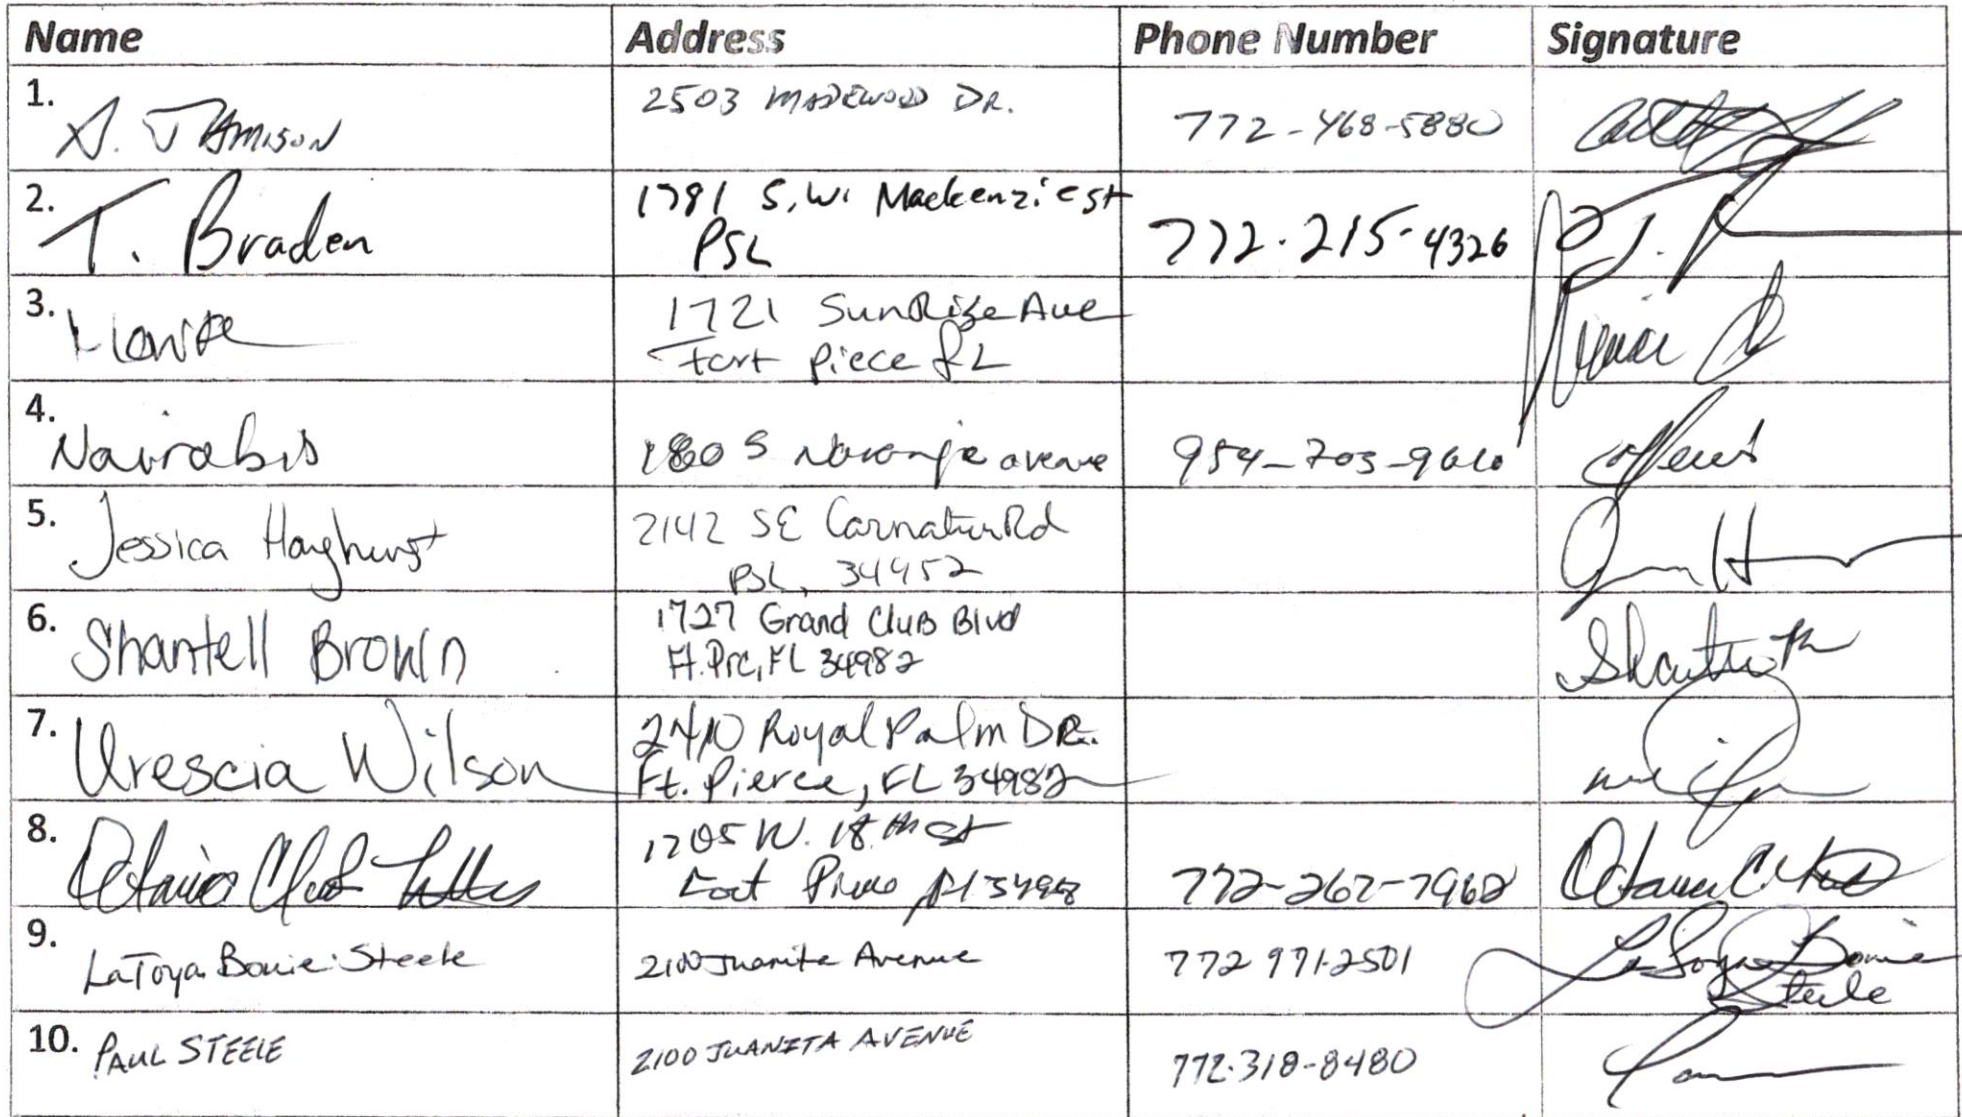 Name Address Phone Number Signature
1. A. JAMISON 2503 MADEWOOD DR. 772-468-5880
2. T. Braden 1781 S.W. Mackenzie st
PSL 772.215-4326
3. 1721 SunRise Ave
Fort Piece FL
4. Nairobis 1860 S Naranja avenue 954-703-9610
5. Jessica Hayhurst 2142 SE Carnation Rd
PSL, 34952
6. Shantell Brown 1727 Grand Club Blvd
Ft. Prc, FL 34982
7. Urescia Wilson 2410 Royal Palm DR.
Ft. Pierce, FL 34982
8. Octavia 1705 N. 18th st
Fort 772-267-7962 Octavia C.
9. LaToya Bowie-Steele 2100 Juanita Avenue 772 971-2501 LaToya Bowie
Steele
10. PAUL STEELE 2100 JUANITA AVENUE 772.318-8480